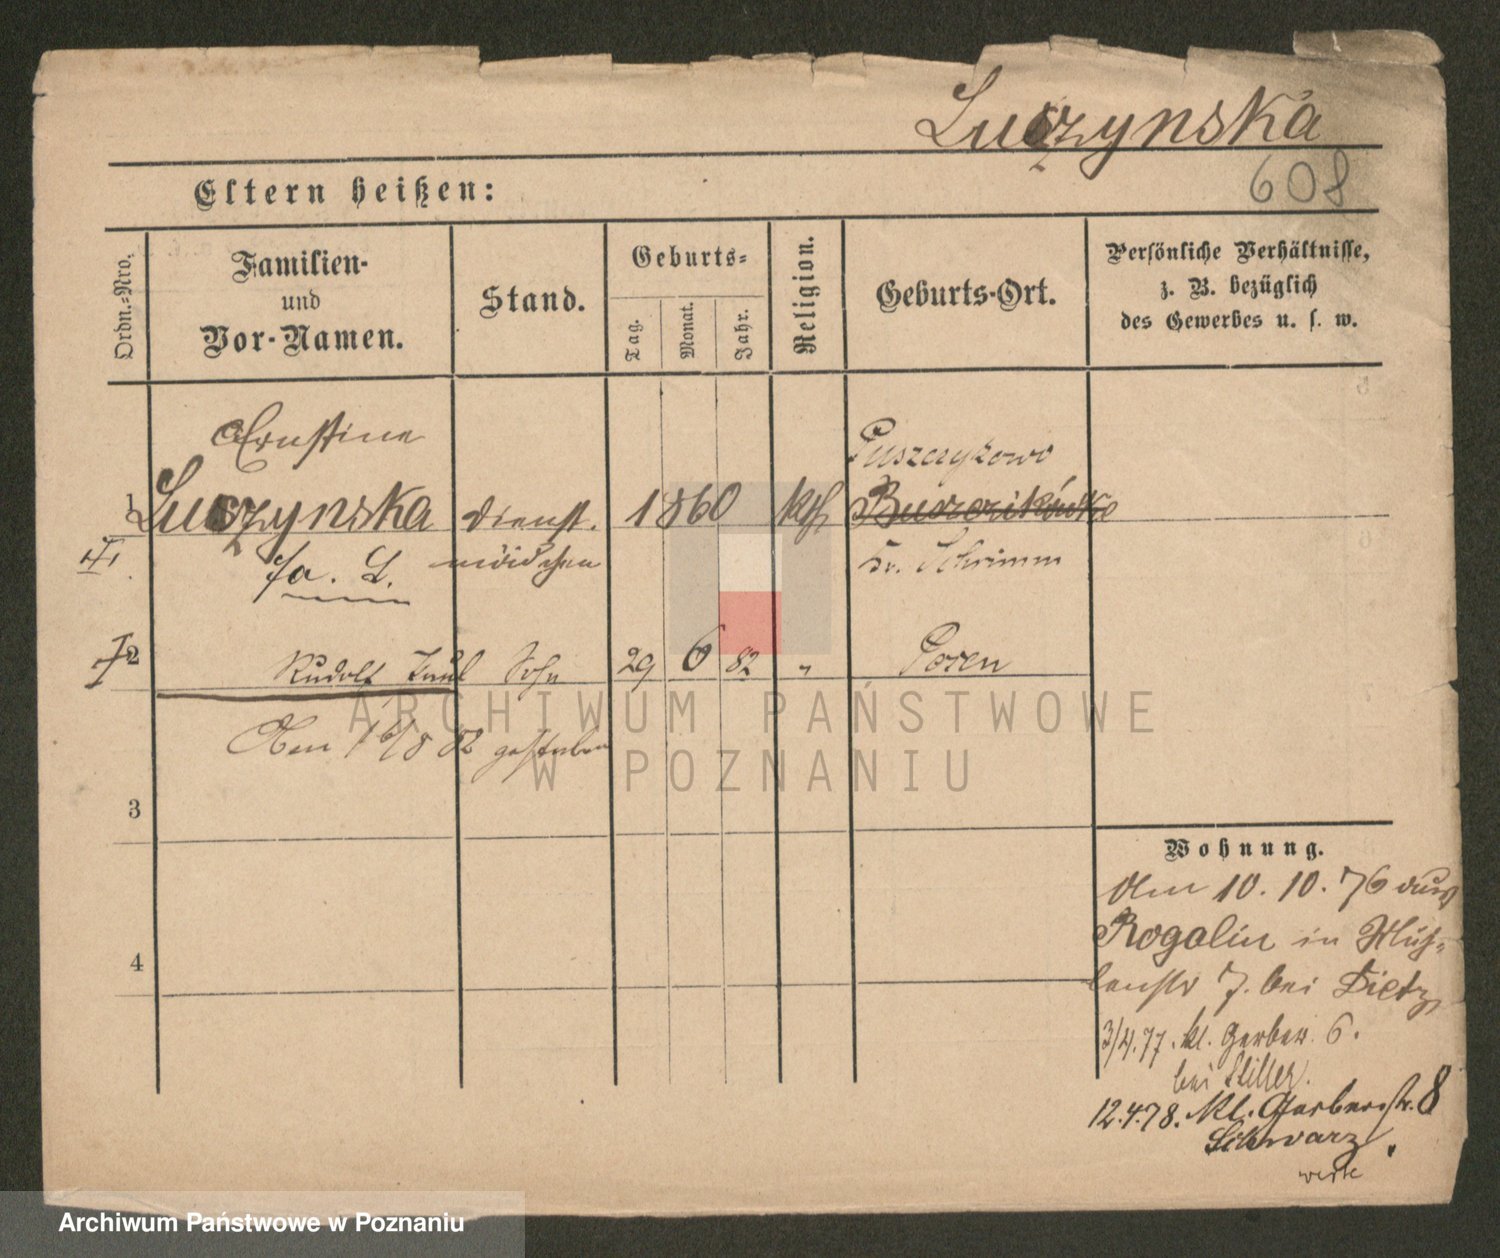 Luczynska
608
Eltern heißen:
Ordn.-Nro.
Familien-
und
Vor-Namen.
Stand.
Geburts-
Tag.
Monat.
Jahr.
Religion.
Geburts-Ort.
Persönliche Verhältnisse,
z. B. bezüglich
des Gewerbes u. s. w.
Ernstine
Puszczykowo
1 Luczynska Dienst- 1860 kth
L. mädchen Kr. Schrimm
2 Rudolf Paul Sohn 29 6 82 " Posen
Oben 16/8 82 gestorben
3
4
Wohnung.
Am 10. 10. 76 aus
Rogalin in Müh-
lenstr 7. bei Dietz
3/4. 77. kl. Gerber. 6.
bei Stiller.
12.4.78. Kl. Gerberstr. 8
Schwarz.
ARCHIWUM PAŃSTWOWE
W POZNANIU
Archiwum Państwowe w Poznaniu